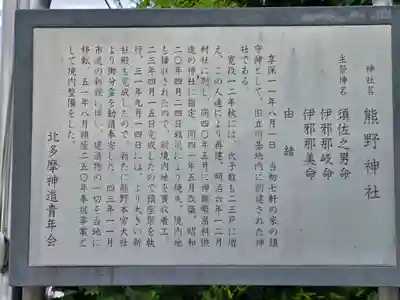 神社名 熊野神社
主祭神名 須佐之男命
伊邪那岐命
伊邪那美命
由緒
享保一一年八月一日 当初七軒の家の鎮
守神として、旧立川基地内に創建された神
社である。
寛政一二年秋には、氏子数も二三戸に増
え、この人達により再建、明治六年一二月
村社に列し、同四〇年五月に神饌幣帛料供
進の神社に指定、同四一年五月改築、昭和
二〇年四月二四日戦災により焼失、境内地
も接収されたので、新境内地を買収着工、
二三年四月一五日完成したので鎮座祭を執
行、三一年九月一四日には、より大きい新
社殿も完成したので、新たに熊野本宮大社
より御分霊を勧請奉斎した。四三年一一月
市道の新設により建造物の一切を当地に
移転、五一年八月鎮座二五〇年奉祝事業と
して境内整備をした。
北多摩神道青年会